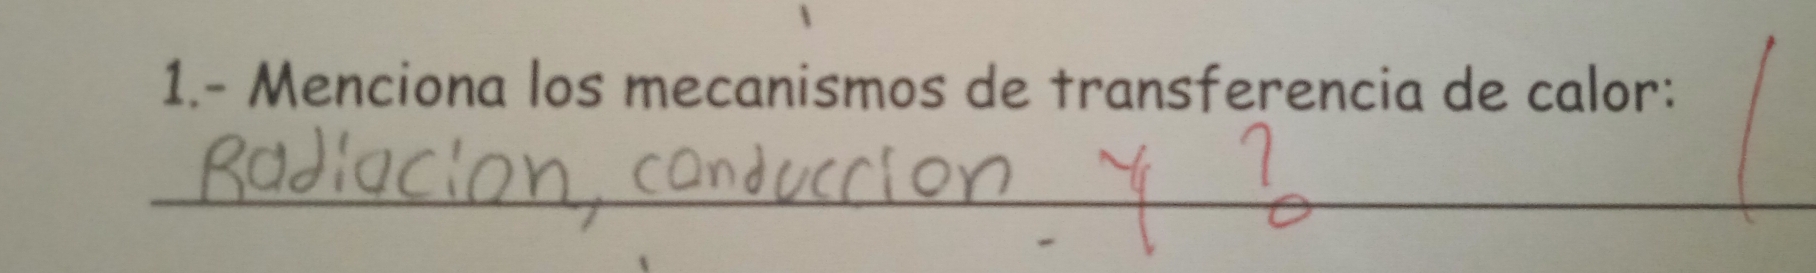 1.- Menciona los mecanismos de transferencia de calor:
Radiacion, conduccion y ?